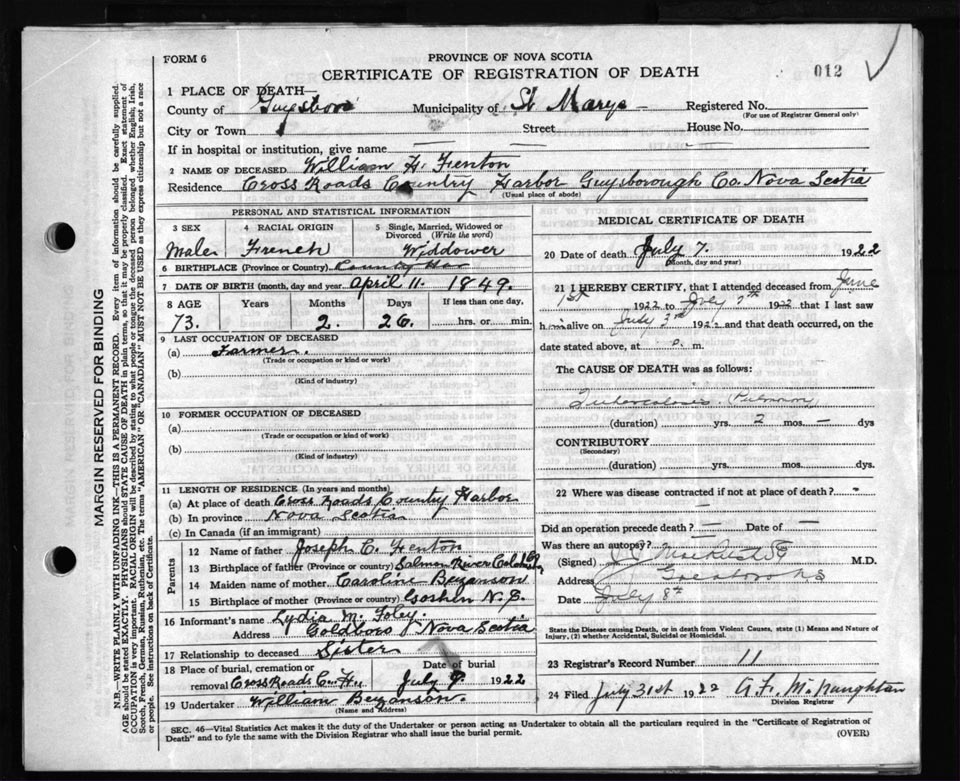 FORM 6
PROVINCE OF NOVA SCOTIA
CERTIFICATE OF REGISTRATION OF DEATH
012
1 PLACE OF DEATH—
County of Guysboro Municipality of St Marys Registered No.
(For use of Registrar General only)
City or Town Street House No.
If in hospital or institution, give name
2 NAME OF DECEASED William H. Fenton
Residence Cross Roads Country Harbor Guysborough Co. Nova Scotia
(Usual place of abode)
PERSONAL AND STATISTICAL INFORMATION
3 SEX 4 RACIAL ORIGIN 5 Single, Married, Widowed or Divorced (Write the word)
Male French Widdower
6 BIRTHPLACE (Province or Country) County Har
7 DATE OF BIRTH (month, day and year) April 11. 1849.
8 AGE Years Months Days If less than one day,
73. 2. 26. hrs. or min.
9 LAST OCCUPATION OF DECEASED
(a) Farmer.
(Trade or occupation or kind of work)
(b)
(Kind of industry)
10 FORMER OCCUPATION OF DECEASED
(a)
(Trade or occupation or kind of work)
(b)
(Kind of industry)
11 LENGTH OF RESIDENCE (In years and months)
(a) At place of death Cross Roads Country Harbor
(b) In province Nova Scotia
(c) In Canada (if an immigrant)
Parents
12 Name of father Joseph C. Fenton
13 Birthplace of father (Province or country) Salmon River
14 Maiden name of mother Caroline Bezanson
15 Birthplace of mother (Province or country) Goshen N.S.
16 Informant's name Lydia M. Foley.
Address Goldboro Nova Scotia
17 Relationship to deceased Sister
18 Place of burial, cremation or Date of burial
removal Cross Roads July 9 1922
19 Undertaker William Bezanson.
(Name and Address)
MEDICAL CERTIFICATE OF DEATH
20 Date of death July 7. 1922
(Month, day and year)
21 I HEREBY CERTIFY, that I attended deceased from June
1st 1922 to July 7th 1922 that I last saw
him alive on July 3rd 1922 and that death occurred, on
date stated above, at m.
The CAUSE OF DEATH was as follows:
Tuberculosis
(duration) yrs. 2 mos. — dys
CONTRIBUTORY
(Secondary)
(duration) yrs. mos. dys.
22 Where was disease contracted if not at place of death? -
Did an operation precede death? — Date of —
Was there an autopsy?
(Signed) M.D.
Address
Date July 8th
State the Disease causing Death, or in death from Violent Causes, state (1) Means and Nature of Injury, (2) whether Accidental, Suicidal or Homicidal.
23 Registrar's Record Number 11
24 Filed July 31st 1922 McNaughton
Division Registrar
SEC. 46—Vital Statistics Act makes it the duty of the Undertaker or person acting as Undertaker to obtain all the particulars required in the "Certificate of Registration of
Death" and to fyle the same with the Division Registrar who shall issue the burial permit. (OVER)
MARGIN RESERVED FOR BINDING
N.B.—WRITE PLAINLY WITH UNFADING INK—THIS IS A PERMANENT RECORD. Every item of information should be carefully supplied.
AGE should be stated EXACTLY. PHYSICIANS should STATE CAUSE OF DEATH in plain terms, so that it may be properly classified. Exact statement of
OCCUPATION is very important. RACIAL ORIGIN will be described by stating to what people or tongue the deceased person belonged whether English, Irish,
Scotch, French, German, Russian, Ruthenian, etc. The terms "AMERICAN" OR "CANADIAN" MUST NOT BE USED as they express citizenship but not a race
or people. See instructions on back of Certificate.